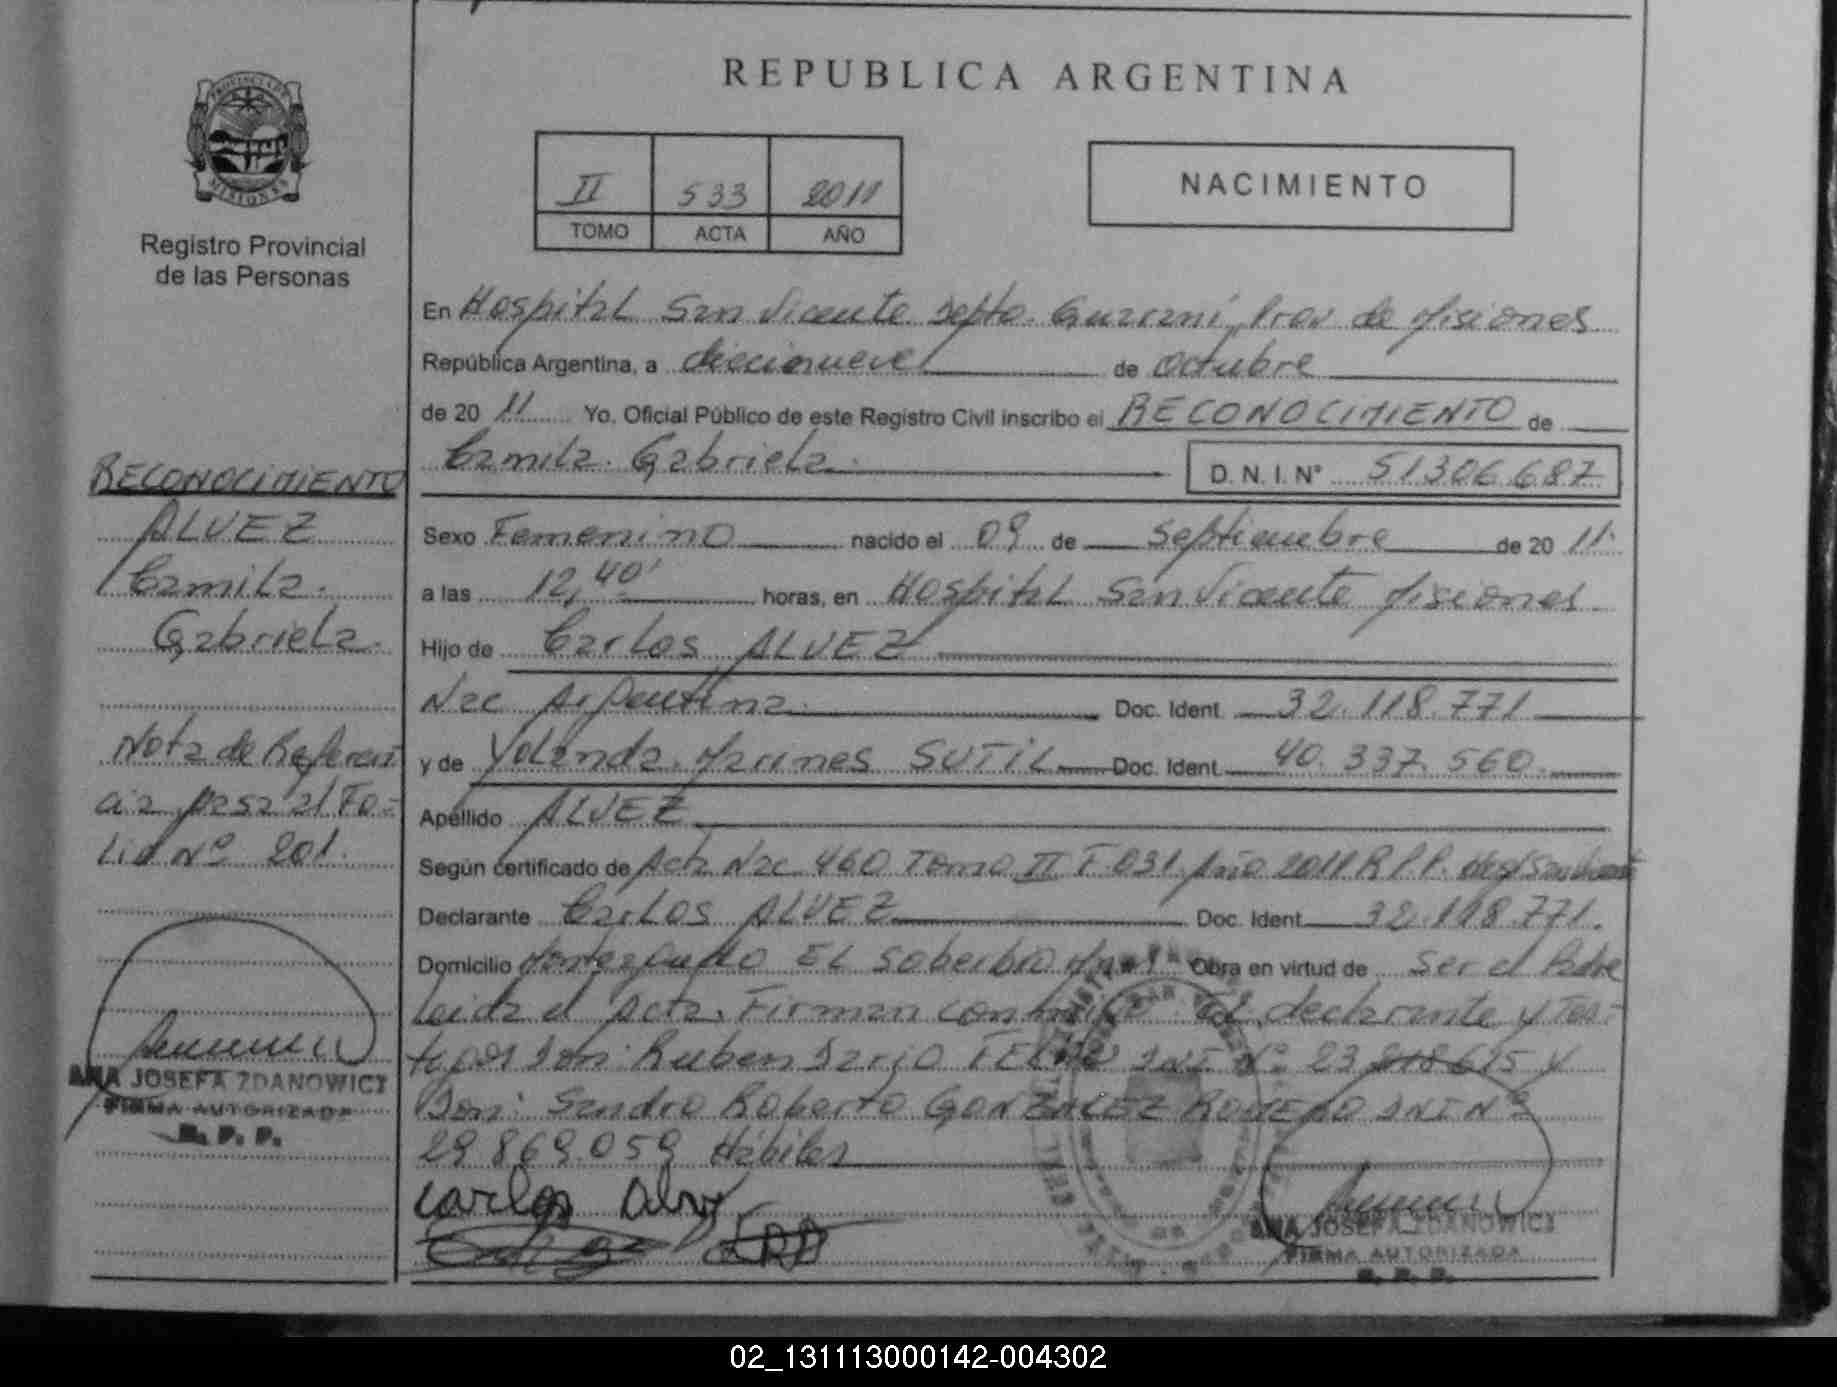 REPUBLICA ARGENTINA
PROVINCIA DE
MISIONES
Registro Provincial
de las Personas
II 533 2011
TOMO ACTA AÑO
NACIMIENTO
RECONOCIMIENTO
ALVEZ
Camila.
Gabriela.
Nota de Referen
cia pasa al Fo=
lio Nº 201.
ANA JOSEFA ZDANOWICZ
FIRMA AUTORIZADA
R. P. P.
En Hospital San Vicente Depto. Guaraní, Prov de Misiones
República Argentina, a diecinueve de octubre
de 20 11 Yo, Oficial Público de este Registro Civil inscribo el RECONOCIMIENTO de
Camila. Gabriela. D. N. I. Nº 51306.687
Sexo Femenino nacido el 09 de septiembre de 20 11.
a las 12,40' horas, en Hospital San Vicente Misiones.
Hijo de Carlos ALVEZ
Nac Argentina. Doc. Ident. 32.118.771
y de Yolanda. Marines SUTIL Doc. Ident. 40.337.560.
Apellido ALVEZ
Según certificado de Acta Nac. 460 Tomo II F.031. Año 2011 R.P.P.
Declarante Carlos ALVEZ Doc. Ident. 32.118.771.
Domicilio Monteagudo EL Soberbio Obra en virtud de Ser el Padre
Leida el Acta. Firman conmigo el declarante y Tes=
tigos Don: Ruben Dario DNI Nº 23 818615 y
Don: Sandro Roberto GONZALEZ ROMERO DNI Nº
29.869.059 Hábiles
Carlos Alvez
ANA JOSEFA ZDANOWICZ
FIRMA AUTORIZADA
R. P. P.
02_131113000142-004302